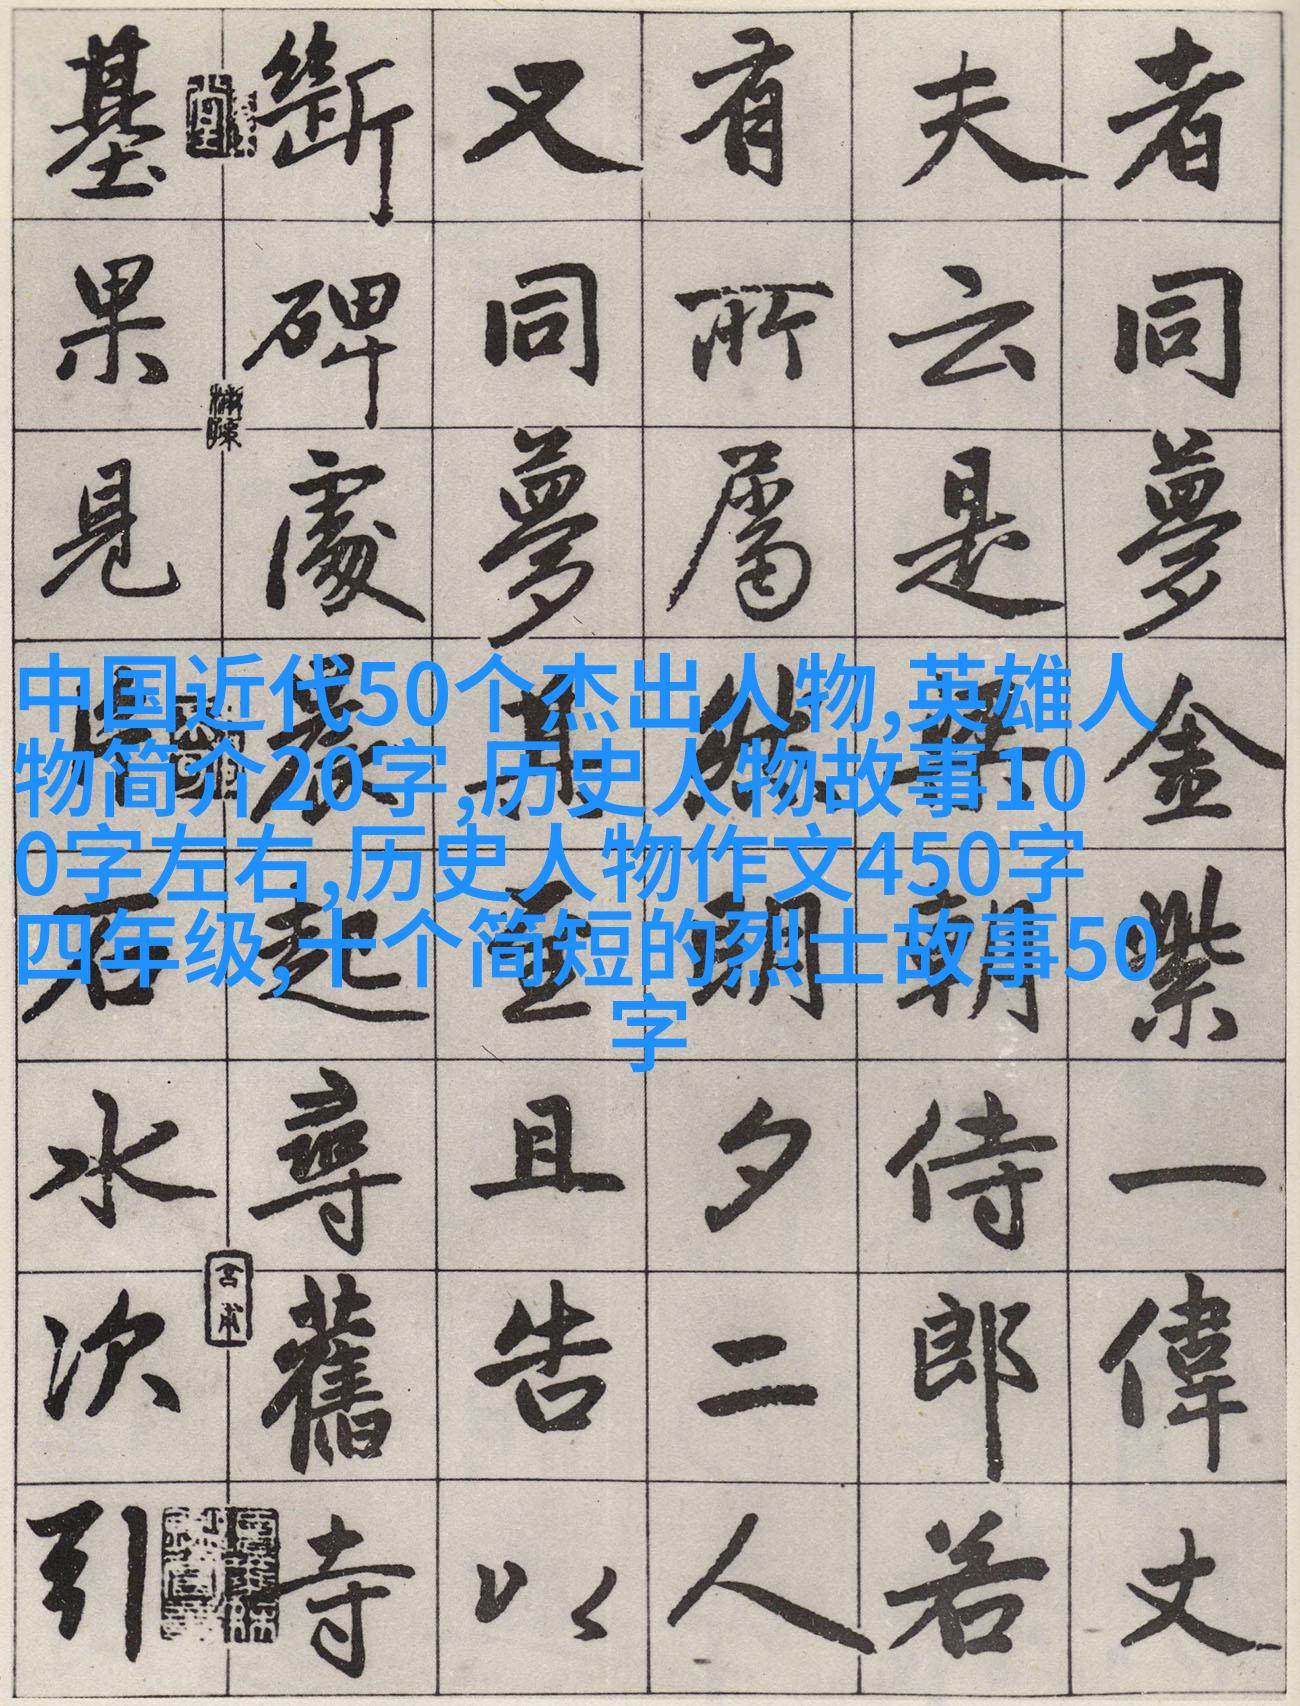 者同夢金紫一偉丈
夫云是梁朝侍郎若
有所屬明夕二人
又同夢再至且告以
斷碑處晨起尋舊寺
基果見片石水次引
中国近代50个杰出人物,英雄人
物简介20字,历史人物故事10
0字左右,历史人物作文450字
四年级,十个简短的烈士故事50
字